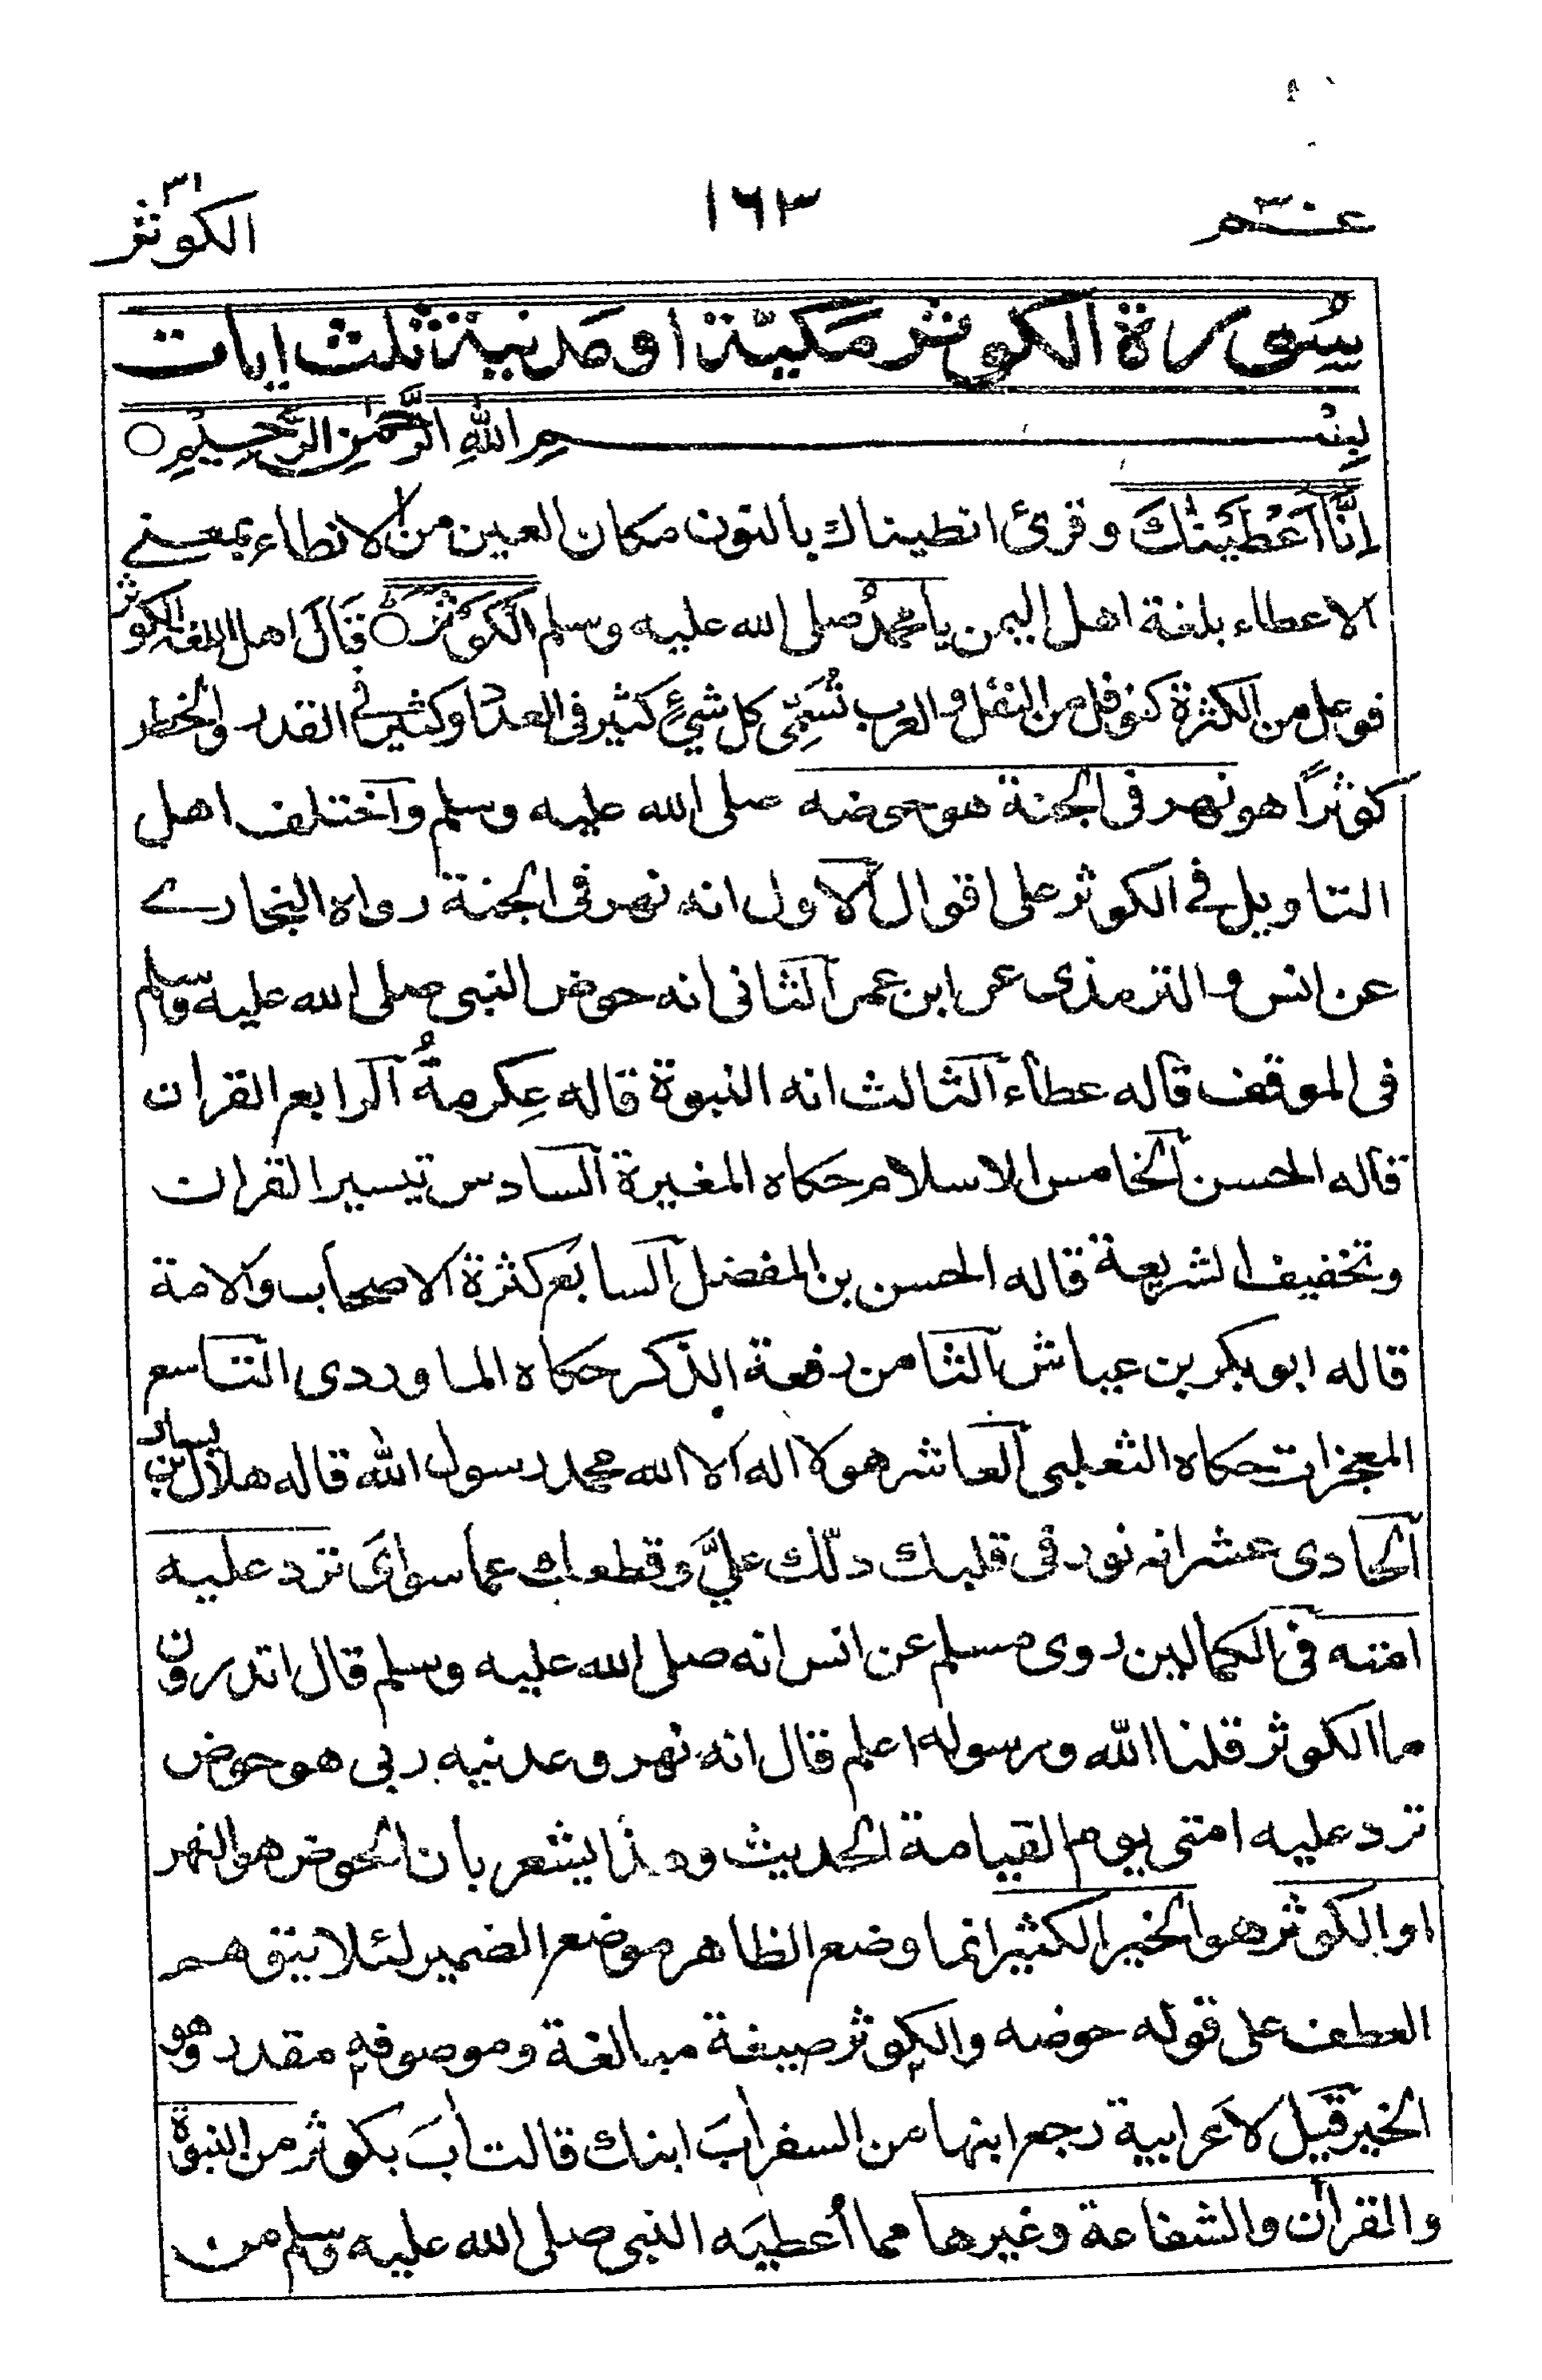 عــم ٣٠
١٦٣
الكوثر ٣١
سُورة الكوثر مَكيّة او مَدنية ثلث ايات
بِسْـــــــمِ اللهِ الرَّحْمٰنِ الرَّحِيْمِ ○
اِنَّآ اَعْطَيْنٰكَ وقرئ انطيناك بالنون مكان العين من الانطاء بمعنے
الاعطاء بلغة اهل اليمن يا محمدُ صلى الله عليه وسلم الْكَوْثَرَ ○ قَالَ اهل اللغة الكوثر
فوعل من الكثرة كنوفل من النفل والعرب تُسَمِّى كل شيءٍ كثير فى العدد او كثير فى القدر والخطر
كوثراً هو نهر فى الجنة هو حوضه صلى الله عليه وسلم واختلف اهل
التاويل فے الكوثر على اقوال الاول انه نهر فى الجنة رواه البخارے
عن انس والترمذى عن ابن عمر الثانى انه حوض النبى صلى الله عليه وسلم
فى الموقف قاله عطاء الثالث انه النبوة قاله عِكرمةُ الرابع القران
قاله الحسن الخامس الاسلام حكاه المغيرة السادس تيسير القران
وتخفيف الشريعة قاله الحسن بن المفضل السابع كثرة الاصحاب والامة
قاله ابو بكر بن عياش الثامن رفعة الذكر حكاه الماوردى التاسع
المعجزات حكاه الثعلبى العاشر هو لا اله الا الله محمد رسول الله قاله هلال بن يسار
الحادى عشر انه نور فى قلبك دلّك عليَّ وقطعك عما سواىَ ترد عليه
امته فى الكمالين روى مسلم عن انس انه صلى الله عليه وسلم قال اتدرون
ما الكوثر قلنا الله ورسوله اعلم قال انه نهر وعدنيه ربى هو حوض
ترد عليه امتى يوم القيامة الحديث وهذا يشعر بان الحوض هو النهر
او الكوثر هو الخير الكثير انما وضع الظاهر موضع الضمير لئلا يتوهم
العطف على قوله حوضه والكوثر صيغة مبالغة وموصوفه مقدر وهو
الخير قيل لاعرابية رجع ابنها من السفر اٰبَ ابنك قالت اٰبَ بكوثر من النبوة
والقراٰن والشفاعة وغيرها مما اُعطيَه النبى صلى الله عليه وسلم من